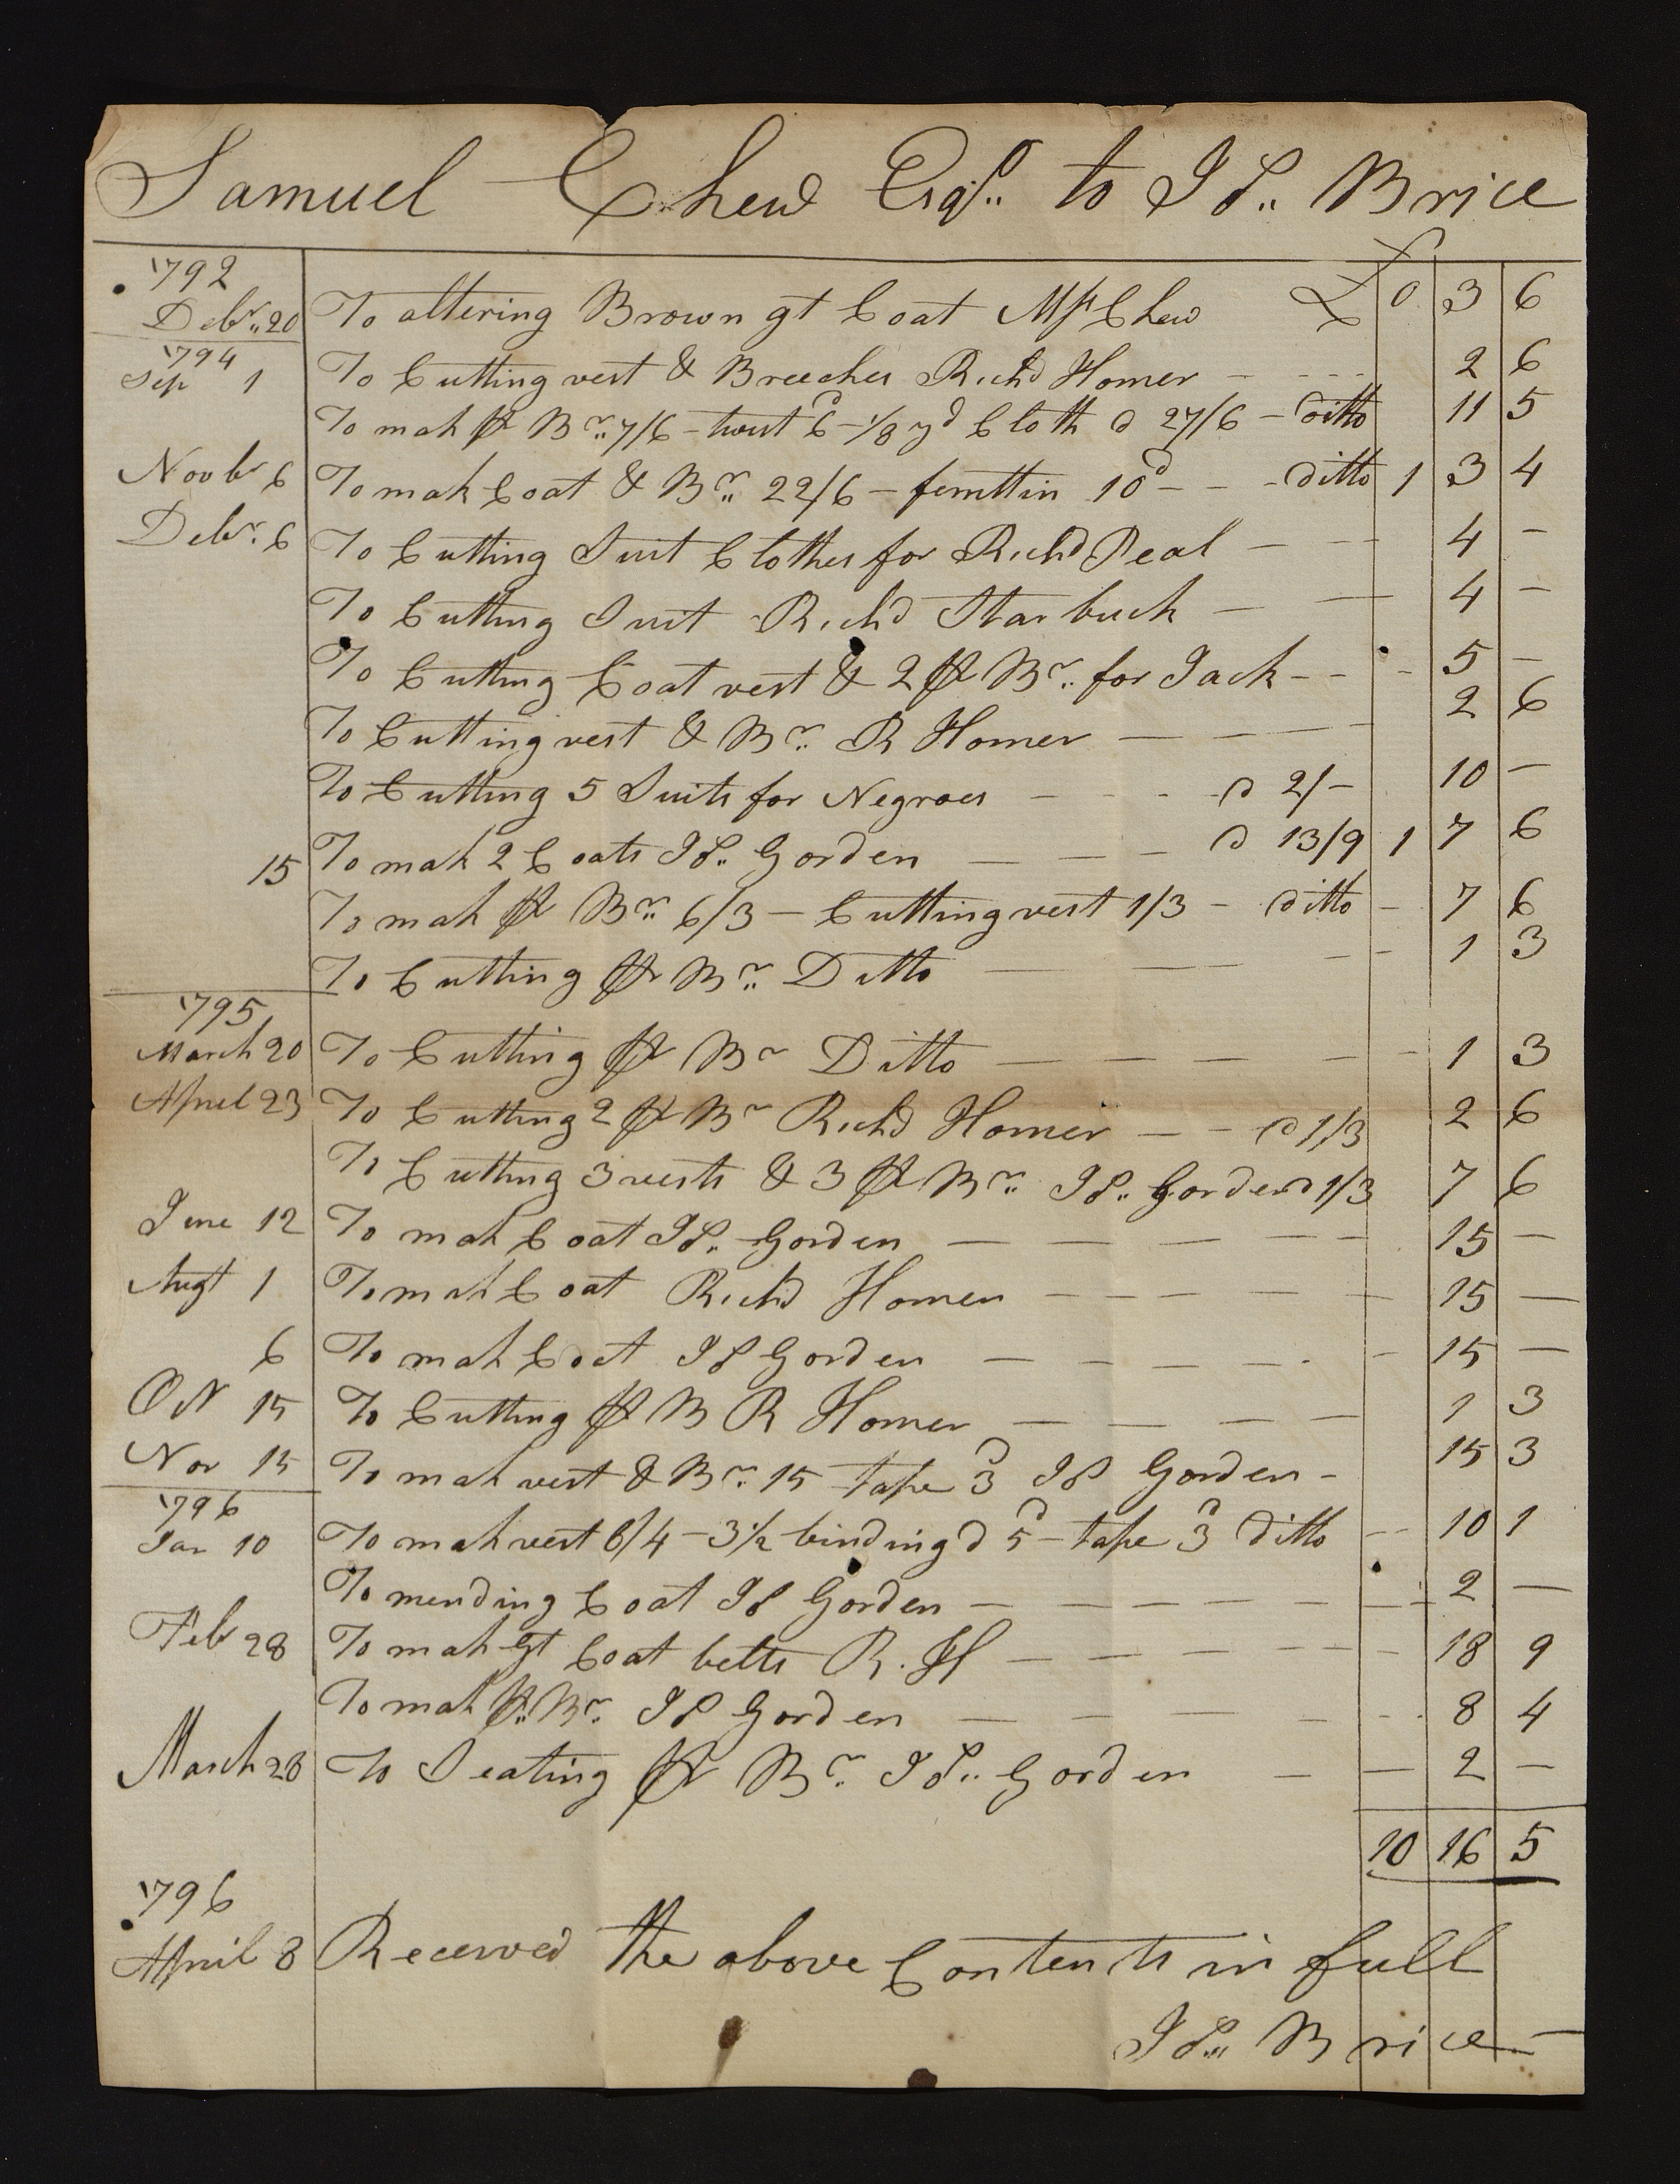 Samuel Chew Esqr. to Js.. Brice
1792
Debr.. 20 To altering Brown gt Coat Mr Chew £ 0 3 6
1794
Sep 1 To Cutting vest & Breeches Richd Homer - - - - 2 6
To mak pr Br.. 7/6 - twist 6d - 1/8 yd Cloth @ 27/6 - ditto 11 5
Novbr 6 To mak Coat & Br.. 22/6 - 10d - - - ditto 1 3 4
Debr. 6 To Cutting Suit Clothes for Richd Peal - - - 4 -
To Cutting Suit Richd Starbuck - - 4 -
To Cutting Coat vest & 2 pr Br.. for Jack - - - 5 -
To Cutting vest & Br.. R Homer - - - - 2 6
To Cutting 5 Suits for Negroes - - - - @ 2/- 10 -
15 To mak 2 Coats Js.. Gorden - - - @ 13/9 1 7 6
To mak pr Br.. 6/3 - Cutting vest 1/3 - ditto - 7 6
To Cutting pr Br.. Ditto - - - - 1 3
1795
March 20 To Cutting pr Br Ditto - - - - - 1 3
Apriel 23 To Cutting 2 pr Br Richd Homer - - @ 1/3 2 6
To Cutting 3 vests & 3 pr Br.. Js.. Gorden @ 1/3 7 6
June 12 To mak Coat Js.. Gorden - - - - - 15 -
Augt 1 To mak Coat Richd Homer - - - - - 15 -
6 To mak Coat Js Gorden - - - - - - 15 -
Oct 15 To Cutting pr B R Homer - - - - 1 3
Nov 15 To mak vest & Br.. 15 tape 3d Js Gorden - 15 3
1796
Jan 10 To mak vest 6/4 - 3 1/2 binding @ 5d - tape 3d ditto - - 10 1
To mending Coat Js Gorden - - - - - - - 2 -
Feb 28 To mak gt Coat belts R. H - - - - - - 18 9
To mak pr.. Br.. Js Gorden - - - - - - 8 4
March 28 To Seating pr Br.. Js.. Gorden - - 2 -
10 16 5
1796
April 8 Received the above Contents in full
Js.. Brice -